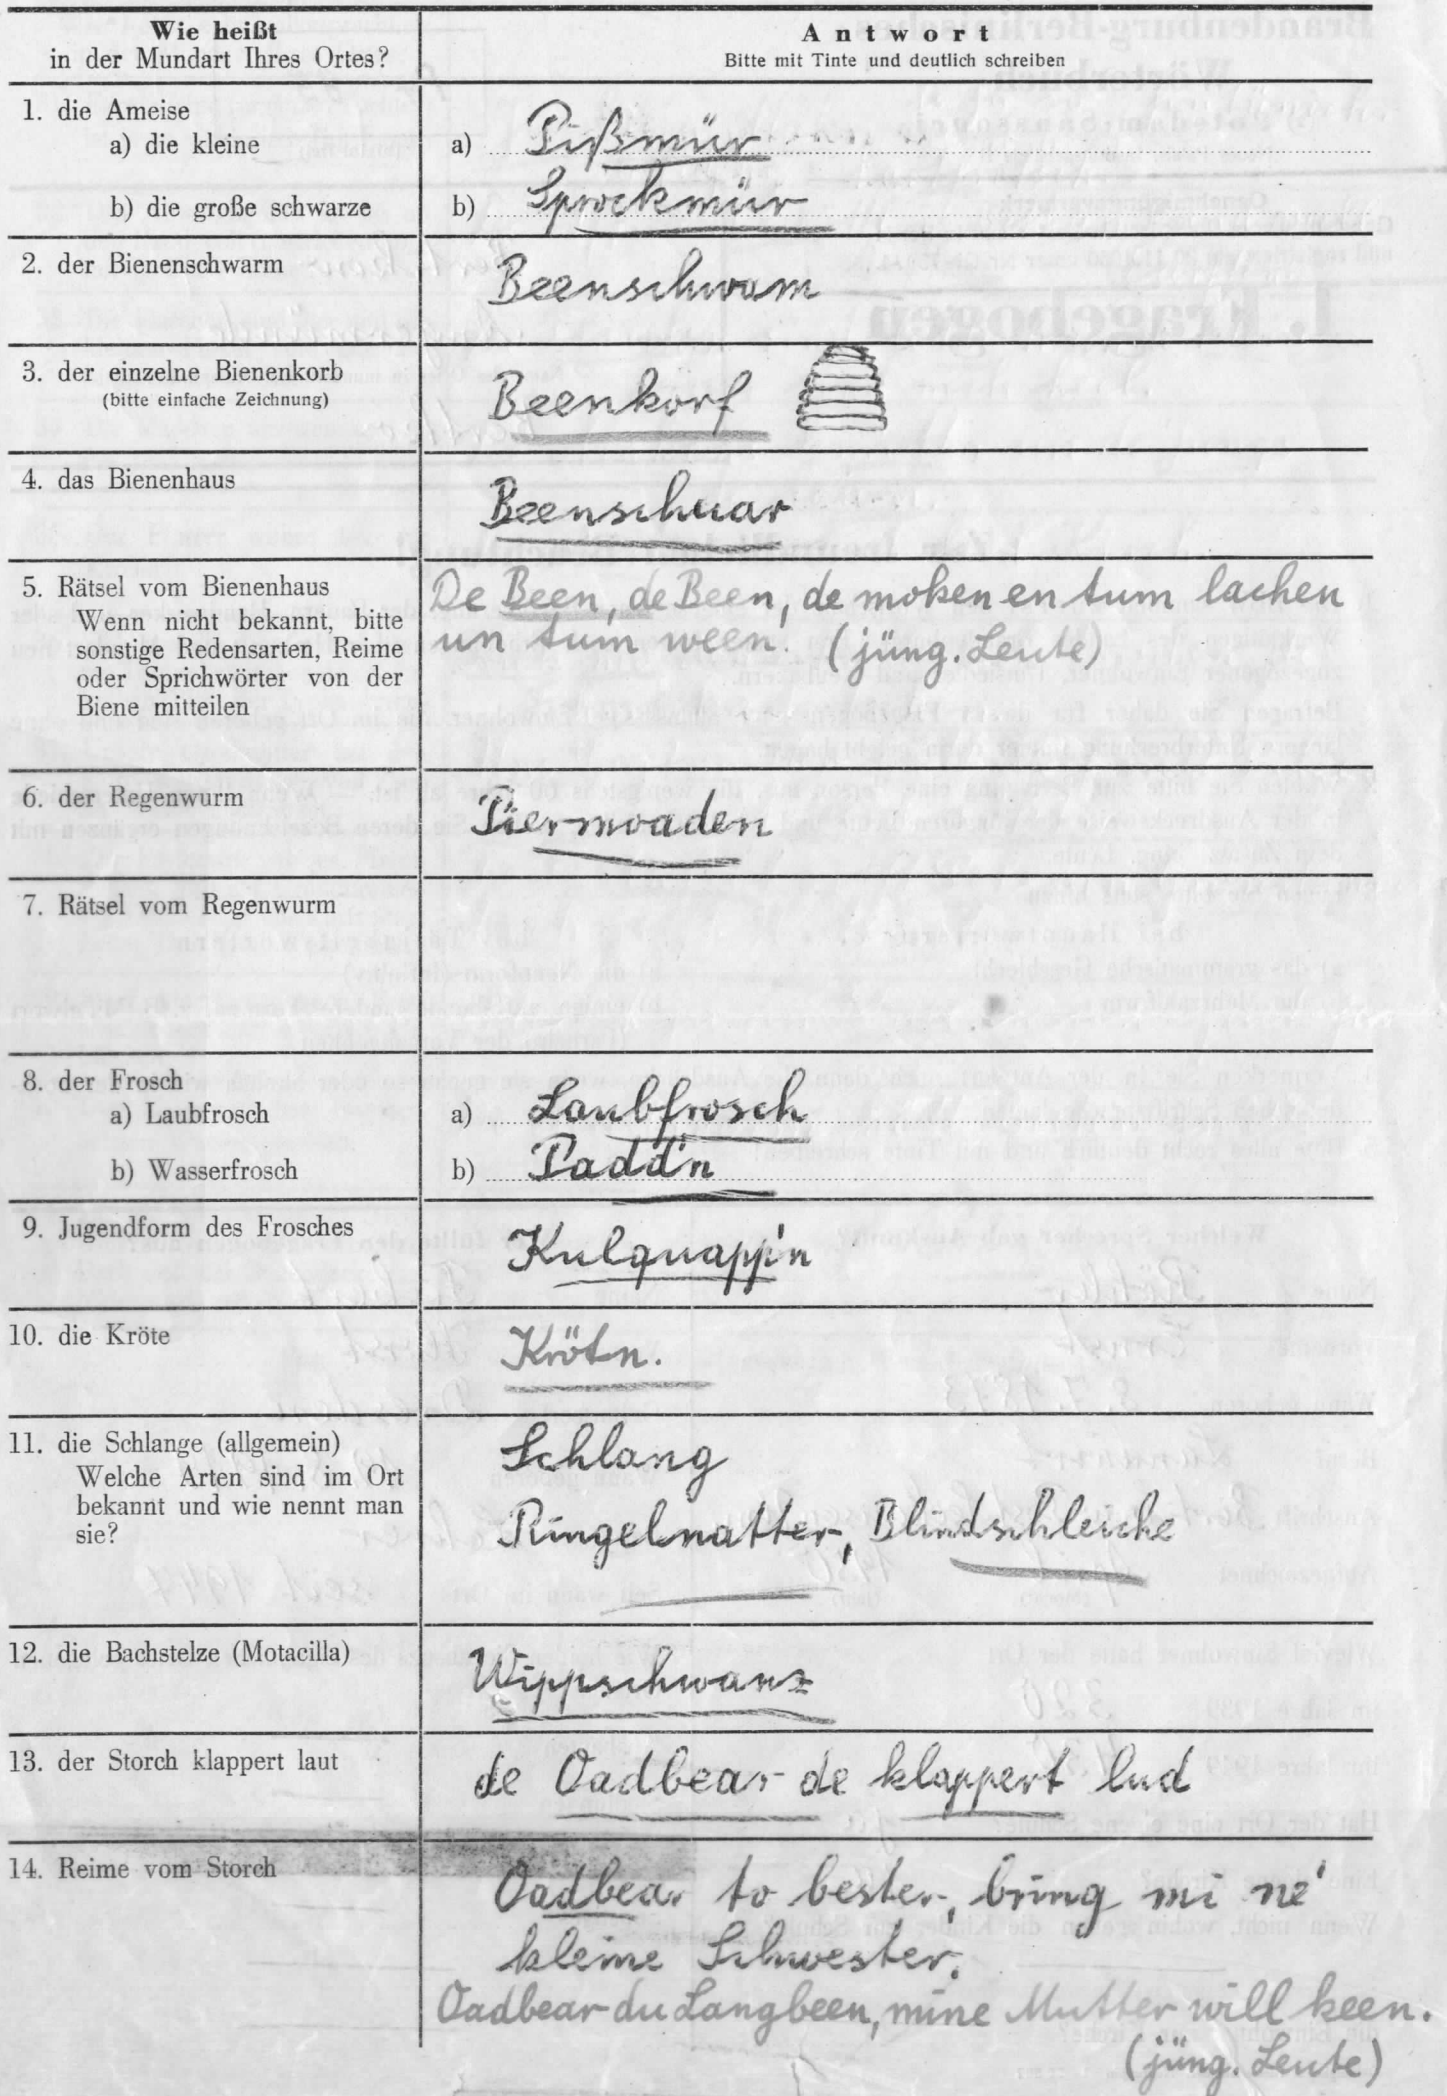 Wie heißt
in der Mundart Ihres Ortes?
Antwort
Bitte mit Tinte und deutlich schreiben
1. die Ameise
a) die kleine
a) Pißmür
b) die große schwarze
b) Sprockmür
2. der Bienenschwarm
Beenschwam
3. der einzelne Bienenkorb
(bitte einfache Zeichnung)
Beenkorf
4. das Bienenhaus
Beenschuar
5. Rätsel vom Bienenhaus
Wenn nicht bekannt, bitte
sonstige Redensarten, Reime
oder Sprichwörter von der
Biene mitteilen
De Been, de Been, de moken en tum lachen
un tum ween. (jüng. Leute)
6. der Regenwurm
Piermoaden
7. Rätsel vom Regenwurm
8. der Frosch
a) Laubfrosch
a) Laubfrosch
b) Wasserfrosch
b) Padd'n
9. Jugendform des Frosches
Kulquapp'n
10. die Kröte
Krötn.
11. die Schlange (allgemein)
Welche Arten sind im Ort
bekannt und wie nennt man
sie?
Schlang
Ringelnatter, Blindschleiche
12. die Bachstelze (Motacilla)
Wippschwanz
13. der Storch klappert laut
de Oadbear de klappert lud
14. Reime vom Storch
Oadbear to bester, bring mi ne'
kleine Schwester.
Oadbear du Langbeen, mine Mutter will keen.
(jüng. Leute)